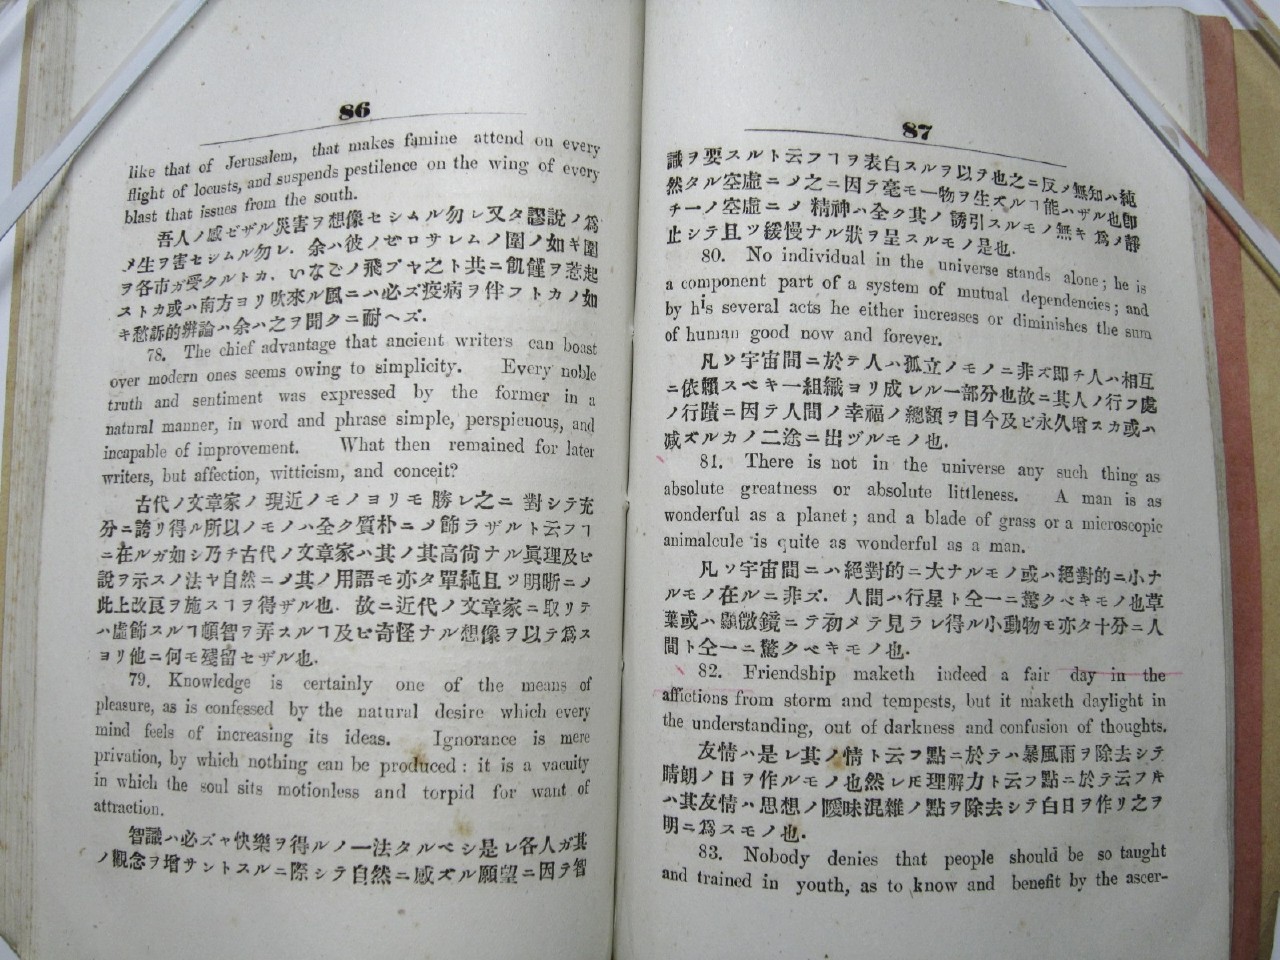 86
like that of Jerusalem, that makes famine attend on every
flight of locusts, and suspends pestilence on the wing of every
blast that issues from the south.
吾人ノ感ゼザル災害ヲ想像セシムル勿レ又タ謬說ノ爲
メ生ヲ害セシムル勿レ、余ハ彼ノゼロサレムノ圍ノ如キ圍
ヲ各市ガ受クルトカ、いなごノ飛ブヤ之ト共ニ飢饉ヲ惹起
ストカ或ハ南方ヨリ吹來ル風ニハ必ズ疫病ヲ伴フトカノ如
キ愁訴的辨論ハ余ハ之ヲ聞クニ耐ヘズ.
78. The chief advantage that ancient writers can boast
over modern ones seems owing to simplicity. Every noble
truth and sentiment was expressed by the former in a
natural manner, in word and phrase simple, perspicuous, and
incapable of improvement. What then remained for later
writers, but affection, witticism, and conceit?
古代ノ文章家ノ現近ノモノヨリモ勝レ之ニ對シテ充
分ニ誇リ得ル所以ノモノハ全ク質朴ニメ飾ラザルト云フヿ
ニ在ルガ如シ乃チ古代ノ文章家ハ其ノ其高尙ナル眞理及ヒ
說ヲ示スノ法ヤ自然ニメ其ノ用語モ亦タ單純且ツ明晰ニメ
此上改良ヲ施スヿヲ得ザル也. 故ニ近代ノ文章家ニ取リテ
ハ虛飾スルヿ頓智ヲ弄スルヿ及ヒ奇怪ナル想像ヲ以テ爲ス
ヨリ他ニ何モ殘留セザル也.
79. Knowledge is certainly one of the means of
pleasure, as is confessed by the natural desire which every
mind feels of increasing its ideas. Ignorance is mere
privation, by which nothing can be produced: it is a vacuity
in which the soul sits motionless and torpid for want of
attraction.
智識ハ必ズヤ快樂ヲ得ルノ一法タルベシ是レ各人ガ其
ノ觀念ヲ增サントスルニ際シテ自然ニ感ズル願望ニ因テ智
87
識ヲ要スルト云フヿヲ表白スルヲ以テ也之ニ反メ無知ハ純
然タル空虛ニメ之ニ因テ毫モ一物ヲ生ズルヿ能ハザル也卽
チ一ノ空虛ニメ精神ハ全ク其ノ誘引スルモノ無キ爲メ靜
止シテ且ツ緩慢ナル狀ヲ呈スルモノ是也.
80. No individual in the universe stands alone; he is
a component part of a system of mutual dependencies; and
by his several acts he either increases or diminishes the sum
of human good now and forever.
凡ソ宇宙間ニ於テ人ハ孤立ノモノニ非ズ卽チ人ハ相互
ニ依賴スベキ一組織ヨリ成レル一部分也故ニ其人ノ行フ處
ノ行蹟ニ因テ人間ノ幸福ノ總額ヲ目今及ビ永久增スカ或ハ
減ズルカノ二途ニ出ヅルモノ也.
81. There is not in the universe any such thing as
absolute greatness or absolute littleness. A man is as
wonderful as a planet; and a blade of grass or a microscopic
animalcule is quite as wonderful as a man.
凡ソ宇宙間ニハ絕對的ニ大ナルモノ或ハ絕對的ニ小ナ
ルモノ在ルニ非ズ. 人間ハ行星ト仝一ニ驚クベキモノ也草
葉或ハ顯微鏡ニテ初メテ見ラレ得ル小動物モ亦タ十分ニ人
間ト仝一ニ驚クベキモノ也.
82. Friendship maketh indeed a fair day in the
affictions from storm and tempests, but it maketh daylight in
the understanding, out of darkness and confusion of thoughts.
友情ハ是レ其ノ情ト云フ點ニ於テハ暴風雨ヲ除去シテ
晴朗ノ日ヲ作ルモノ也然レ𪜈理解力ト云フ點ニ於テ云フキ
ハ其友情ハ思想ノ曖昧混雜ノ點ヲ除去シテ白日ヲ作リ之ヲ
明ニ爲スモノ也.
83. Nobody denies that people should be so taught
and trained in youth, as to know and benefit by the ascer-